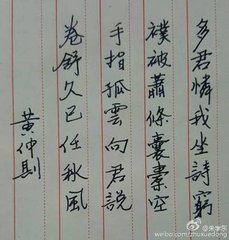 多君憐我坐詩窮
襆被蕭條囊橐空
手指孤雲向君説
卷舒久已任秋風
黄仲則
@朱学东
weibo.com/zhuxuedong